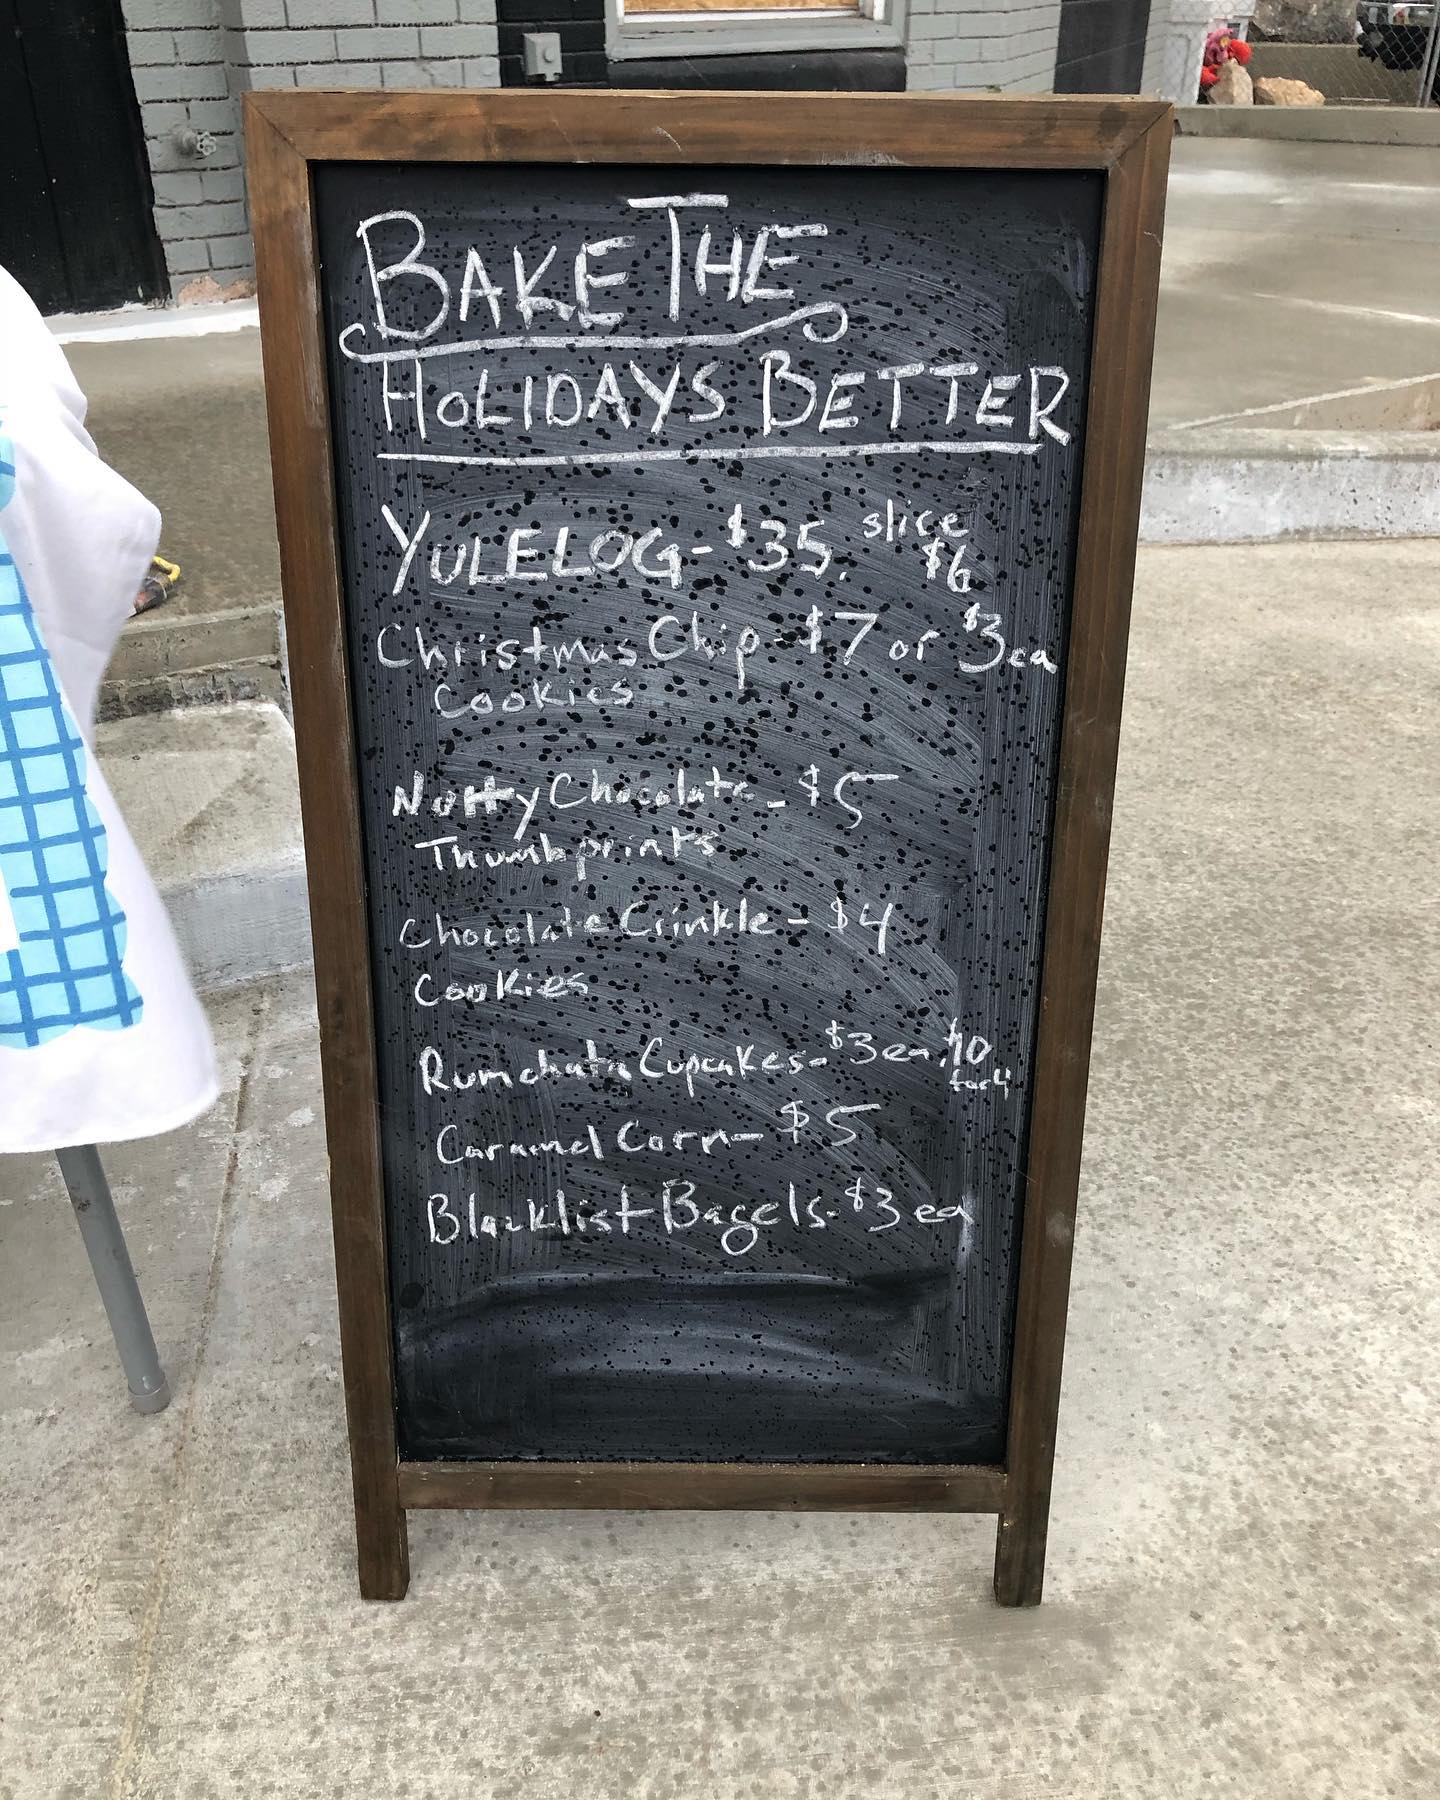 BAKE THE
HOLIDAYS BETTER
YULELOG - $35. slice $6
Christmas Chip - $7 or $3ea
Cookies
Nutty Chocolate - $5
Thumbprints
Chocolate Crinkle - $4
Cookies
Rumchata Cupcakes - $3ea, $10 for 4
Caramel Corn - $5
Blacklist Bagels - $3 ea